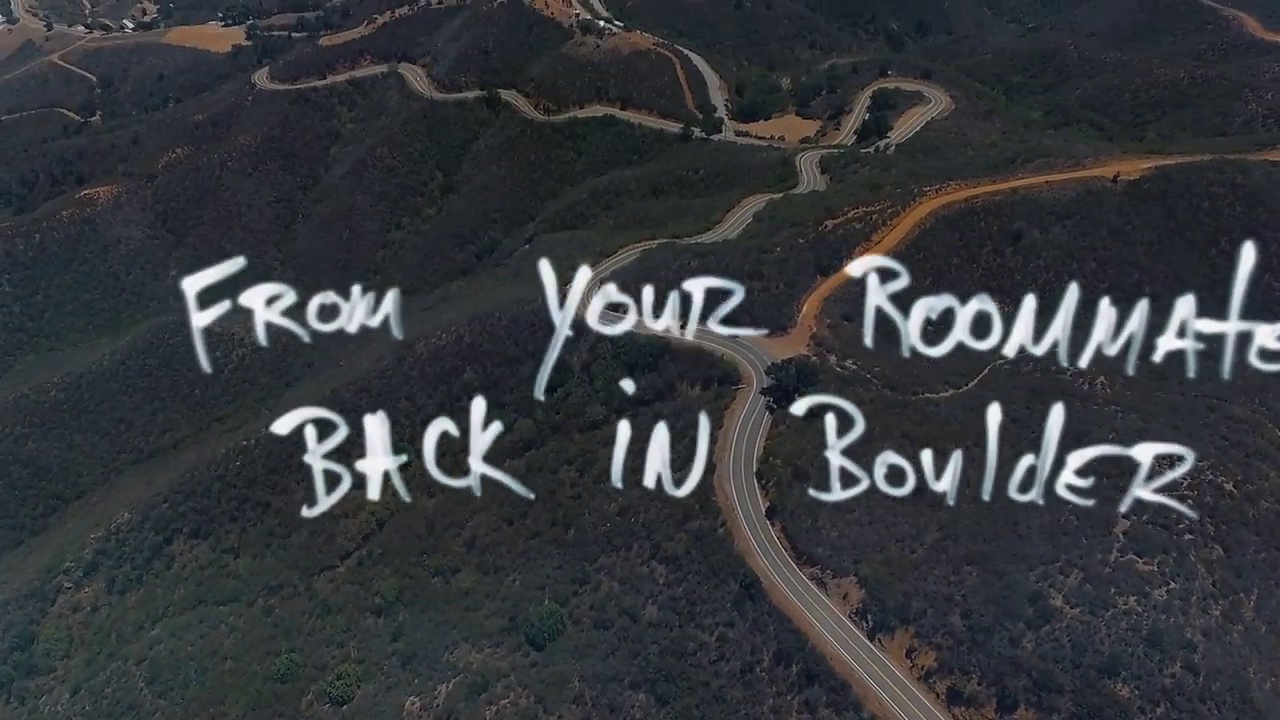 From your Roommate
Back in Boulder